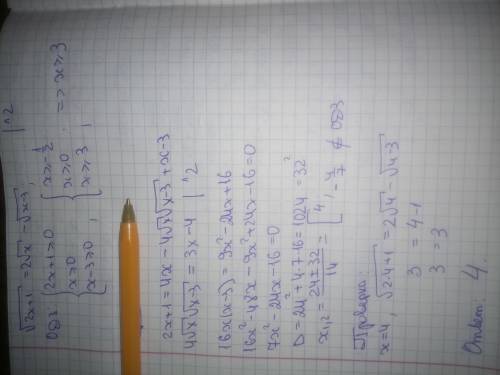 √2x+1 = 2√x - √x-3, | ^2
ОДЗ: { 2x+1≥0 x≥0 x-3≥0 , { x≥-1/2 x≥0 x≥3 , => x≥3
2x+1 = 4x - 4√x√x-3 + x-3
4√x√x-3 = 3x-4 | ^2
16x(x-3) = 9x²-24x+16
16x²-48x-9x²+24x-16=0
7x²-24x-16=0
D=24²+4·7·16=1024=32²
x₁,₂ = 24±32/14 = [ 4, -4/7 ∉ ОДЗ
Проверка:
x=4, √2·4+1 = 2√4 - √4-3
3 = 4-1
3 = 3
Ответ: 4.